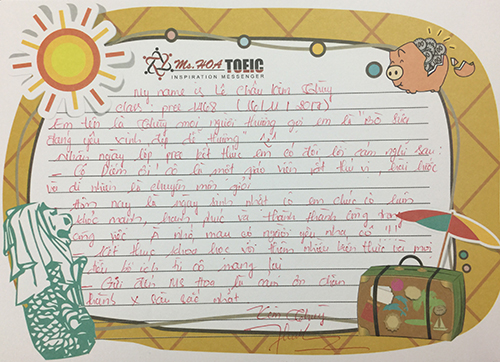 Ms.HOA TOEIC
INSPIRATION MESSENGER
My name is Lê Châu Kim Thùy
class: pree 1468 (16/11/2017)
Em tên là Thùy mọi người thường gọi em là "bò sữa
đáng yêu xinh đẹp dễ thương"
Nhân ngày lớp pree kết thúc em có đôi lời cảm nghĩ sau:
- Cô Diễm ơi! Cô là một giáo viên rất thú vị, hài hước
và dĩ nhiên là chuyên môn giỏi
Hôm nay là ngày sinh nhật cô em chúc cô luôn
khỏe mạnh, hạnh phúc và thành công trong
công việc. À nhớ mau có người yêu nha cô!!!
- Kết thúc khóa học với thêm nhiều kiến thức và mới
bổ ích từ cô mang lại
- Gửi đến Ms Hoa lời cảm ơn chân
thành & sâu sắc nhất
Kim Thùy